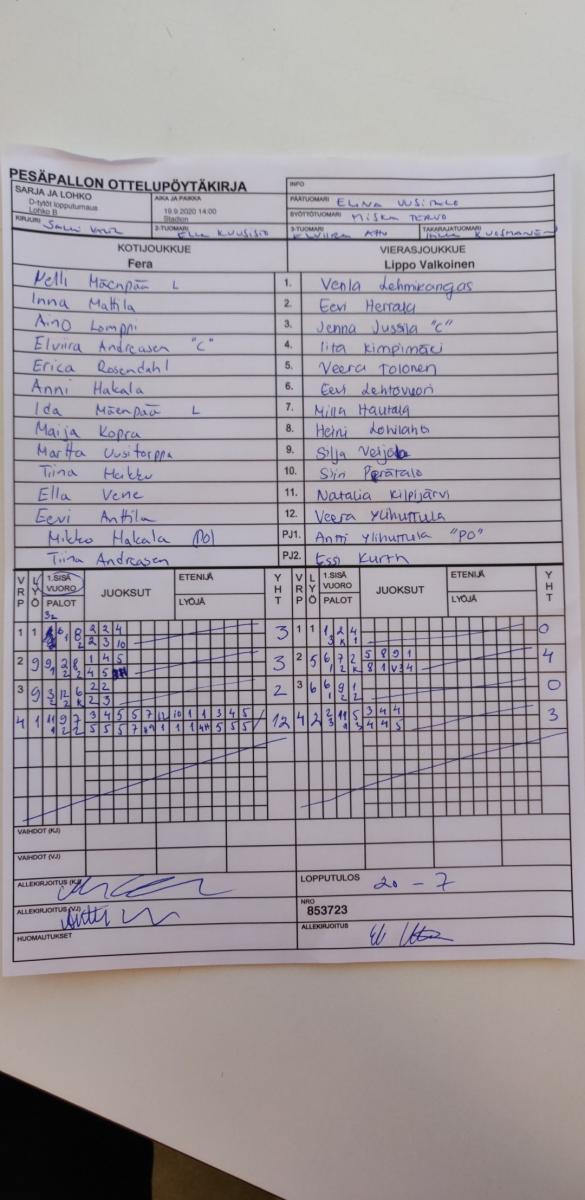 PESÄPALLON OTTELUPÖYTÄKIRJA
INFO
SARJA JA LOHKO
D-tytöt lopputurnaus
Lohko B
AIKA JA PAIKKA
19.9.2020 14:00
Stadion
PÄÄTUOMARI ELINA
SYÖTTÖTUOMARI MISKA TERVO
KIRJURI
2-TUOMARI ELLA KUUSISTO
3-TUOMARI ELVIIRA
TAKARAJATUOMARI KUOSMANEN
KOTIJOUKKUE
Fera
VIERASJOUKKUE
Lippo Valkoinen
Nelli Mäenpää L 1. Venla Lehmikangas
Inna Mattila 2. Eevi Herrala
Aino Lomppi 3. Jenna Jussila "C"
Elviira Andreasen "C" 4. Iita Kimpimäki
Erica Rosendahl 5. Veera Tolonen
Anni Hakala 6. Eevi Lehtovuori
Ida Mäenpää L 7. Milla Hautala
Maija Kopra 8. Heini
Martta Uusitorppa 9. Silja Veijola
Tiina Heikku 10. Siiri Perätalo
Ella Vene 11. Natalia Kilpijärvi
Eevi Anttila 12. Veera Ylihuttula
Mikko Hakala PJ1. Antti Ylihuttula "PO"
Tiina Andreasen PJ2. Essi Kurth
VRP LYÖ 1.SISÄ VUORO PALOT JUOKSUT ETENIJÄ LYÖJÄ YHT VRP LYÖ 1.SISÄ VUORO PALOT JUOKSUT ETENIJÄ LYÖJÄ YHT
1 1 8 2 2 4 3 1 1 1 2 4 0
2 2 3 10
2 9 9 2 8 1 4 5 3 2 5 6 7 2 5 8 9 1 4
3 9 3 12 6 2 2 2 3 6 6 9 1 0
4 1 11 9 7 3 4 5 5 7 12 10 1 1 3 4 5 12 4 2 2 11 5 3 4 4 3
VAIHDOT (KJ)
VAIHDOT (VJ)
ALLEKIRJOITUS (KJ)
LOPPUTULOS 20 - 7
ALLEKIRJOITUS (VJ)
NRO
853723
HUOMAUTUKSET
ALLEKIRJOITUS